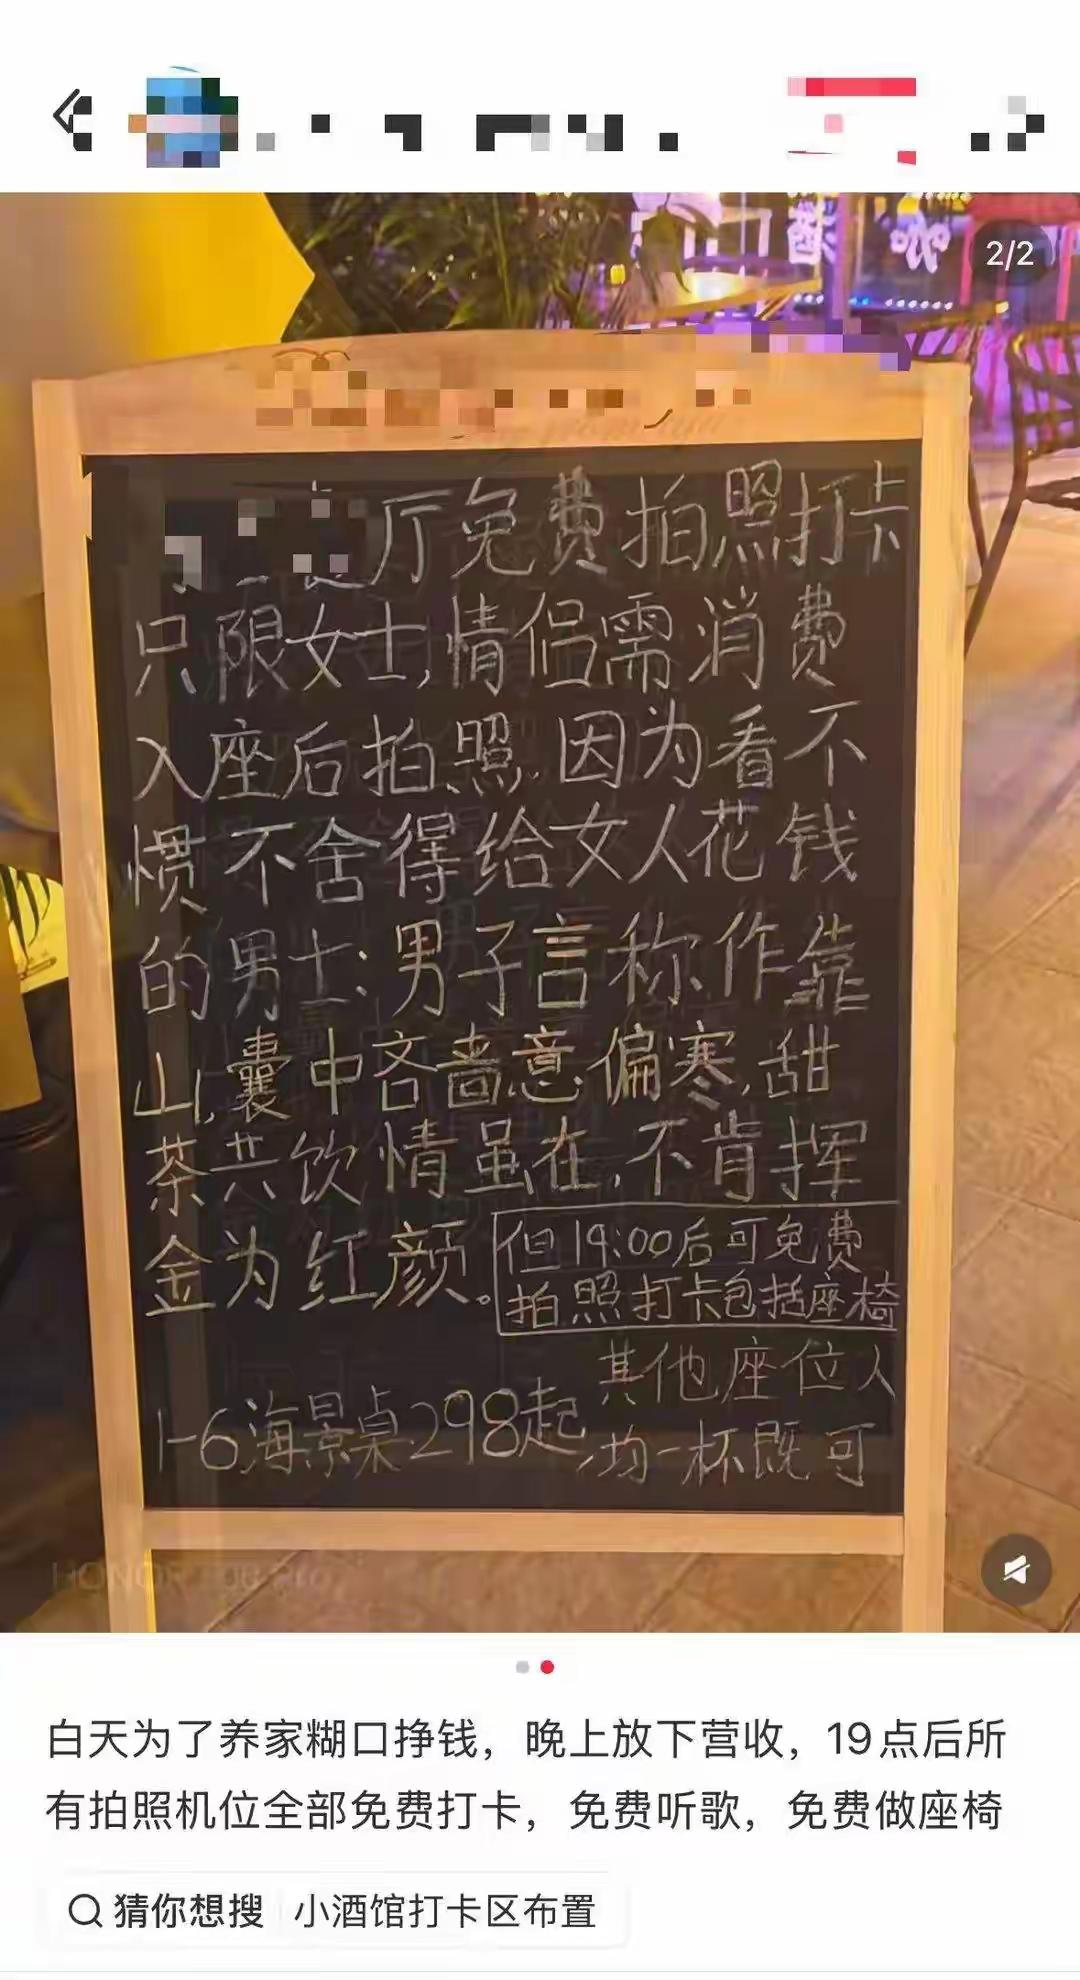 2/2
厅免费拍照打卡
只限女士,情侣需消费
入座后拍照.因为看不
惯不舍得给女人花钱
的男士:男子言称作靠
山,囊中吝啬意偏寒,甜
茶共饮情虽在,不肯挥
金为红颜。
但19:00后可免费
拍照打卡包括座椅
其他座位人
1-6海景桌298起,均一杯既可
白天为了养家糊口挣钱，晚上放下营收，19点后所
有拍照机位全部免费打卡，免费听歌，免费做座椅
猜你想搜 小酒馆打卡区布置